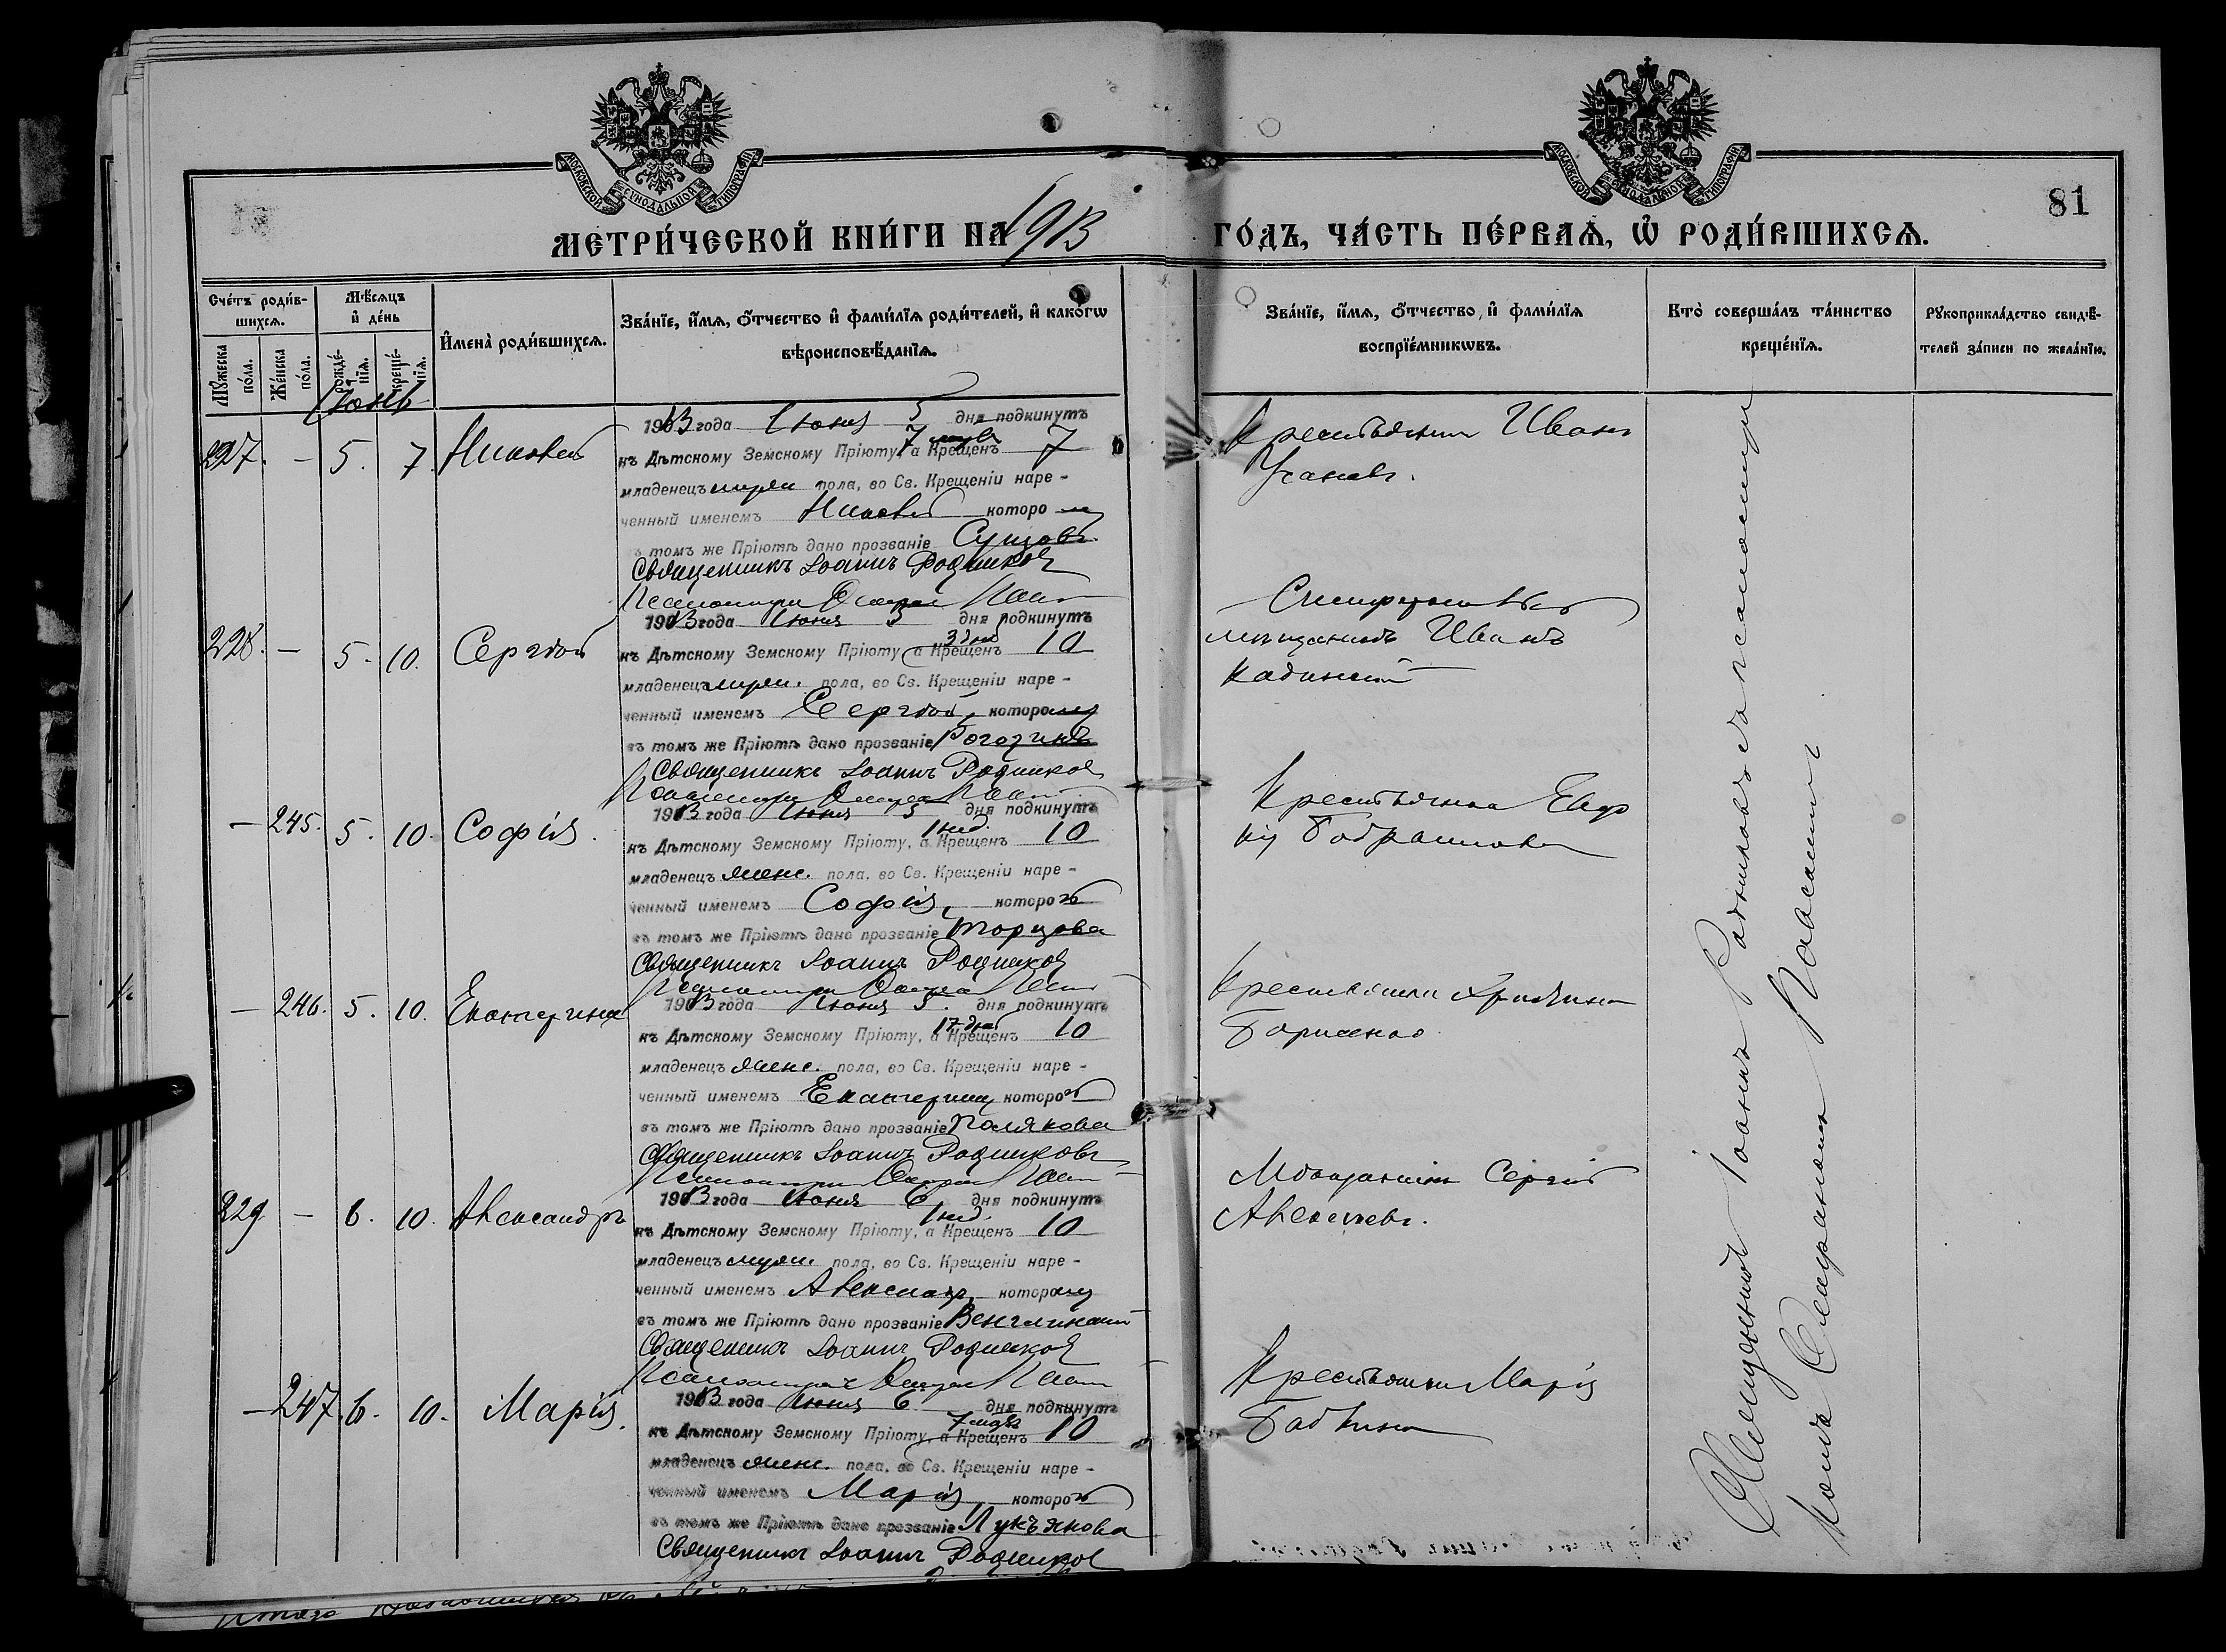 МОСКОВСКОЙ СѴНОДАЛЬНОЙ ТИПОГРАФІИ
МОСКОВСКОЙ СѴНОДАЛЬНОЙ ТИПОГРАФІИ
81
МЕТРИ́ЧЕСКОЙ КНИ́ГИ НА 1913 ГО́ДЪ, ЧА́СТЬ ПЕ́РВАѦ, Ѡ РОДИ́ВШИХСѦ.
Сче́тъ роди́в-
шихсѧ.
Мꙋ́жеска по́ла.
Же́нска по́ла.
Мѣ́сѧцъ и҆ де́нь
рожде́-
нїѧ.
креще́-
нїѧ.
И҆мена̀ роди́вшихсѧ.
Зва́нїе, и҆́мѧ, ѻ҆́тчество и҆ фами́лїѧ роди́телей, и҆ како́гѡ
вѣроисповѣ́данїѧ.
Зва́нїе, и҆́мѧ, ѻ҆́тчество, и҆ фами́лїѧ
воспрїе́мникѡвъ.
Кто̀ соверша́лъ та́инство
креще́нїѧ.
Рꙋкоприкла́дство свидѣ́-
телей за́писи по жела́нїю.
Іюнь
227. - 5. 7.
1913 года Іюня 5 дня подкинутъ
къ Дѣтскому Земскому Пріюту, а Крещенъ 7
младенецъ муж. пола, во Св. Крещеніи наре-
ченный именемъ которо му
въ томъ же Пріютѣ дано прозваніе
Священникъ Іоаннъ Родниковъ
Крестьянинъ Иванъ
Усановъ.
228. - 5. 10. Сергѣй
1913 года Іюня 5 дня подкинутъ
3 дней
къ Дѣтскому Земскому Пріюту, а Крещенъ 10
младенецъ муж. пола, во Св. Крещеніи наре-
ченный именемъ Сергѣй, которому
въ томъ же Пріютѣ дано прозваніе Рогозинъ
Священникъ Іоаннъ Родниковъ
мѣщанинъ Иванъ
Кадинскій
- 245. 5. 10. Софія.
1913 года Іюня 5 дня подкинутъ
1 нед.
къ Дѣтскому Земскому Пріюту, а Крещенъ 10
младенецъ женс. пола, во Св. Крещеніи наре-
ченный именемъ Софія, которой
въ томъ же Пріютѣ дано прозваніе Торцова
Священникъ Іоаннъ Родниковъ
- 246. 5. 10. Екатерина
1913 года Іюня 5. дня подкинутъ
17 дней
къ Дѣтскому Земскому Пріюту, а Крещенъ 10
младенецъ женс. пола, во Св. Крещеніи наре-
ченный именемъ Екатерина, которой
въ томъ же Пріютѣ дано прозваніе Полякова
Священникъ Іоаннъ Родниковъ
229 - 6. 10. Александръ
1913 года Іюня 6 дня подкинутъ
1 нед.
къ Дѣтскому Земскому Пріюту, а Крещенъ 10
младенецъ муж. пола, во Св. Крещеніи наре-
ченный именемъ Александръ, которому
въ томъ же Пріютѣ дано прозваніе
Священникъ Іоаннъ Родниковъ
Мѣщанинъ Сергій
Алексѣевъ.
- 247. 6. 10. Марія.
1913 года Іюня 6 дня подкинутъ
къ Дѣтскому Земскому Пріюту, а Крещенъ 10
младенецъ женс. пола, во Св. Крещеніи наре-
ченный именемъ Марія, которой
въ томъ же Пріютѣ дано прозваніе Лукьянова
Священникъ Іоаннъ Родниковъ
Крестьянка Марія
Священникъ Іоаннъ Родниковъ съ псаломщи